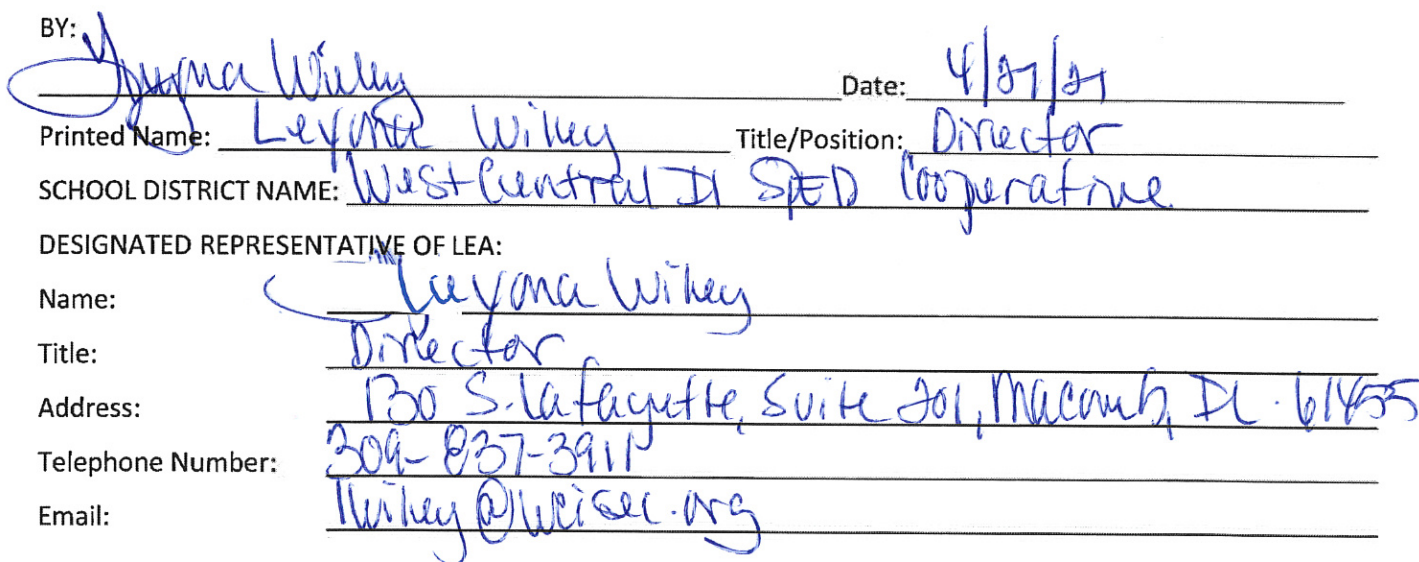 BY:
Leyona Wiley Date: 4/27/21
Printed Name: Leyona Wiley Title/Position: Director
SCHOOL DISTRICT NAME: West Central Il SPED Cooperative
DESIGNATED REPRESENTATIVE OF LEA:
Name: Leyona Wiley
Title: Director
Address: 130 S. Lafayette, Suite 201, Macomb, IL. 61455
Telephone Number: 309-837-3911
Email: lwiley@wcisec.org